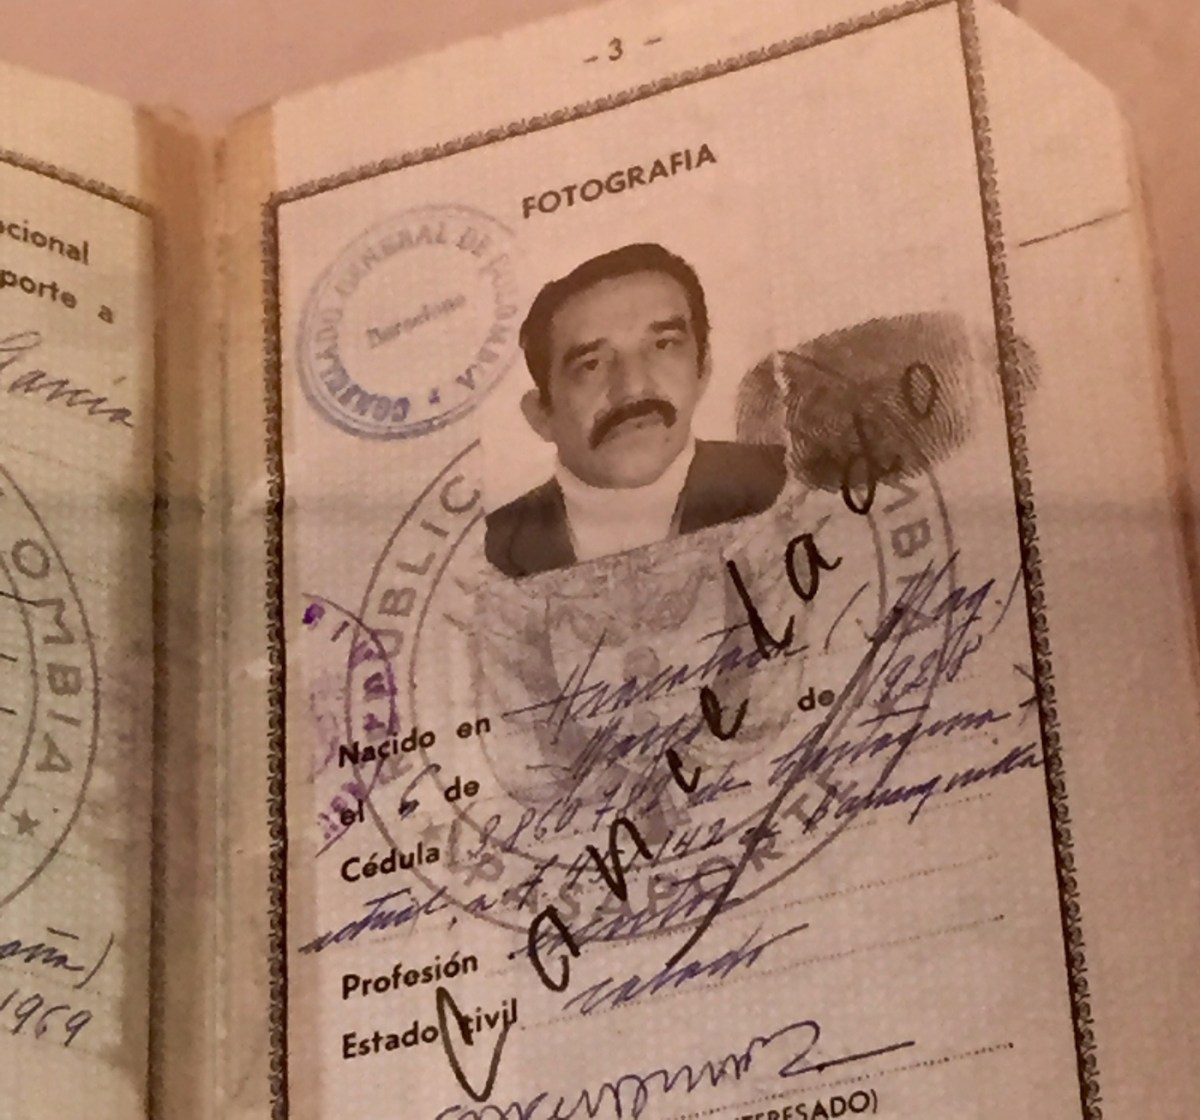 ocional
porte a
García
OMBIA
aña)
1969
- 3 -
FOTOGRAFIA
CONSULADO GENERAL DE COLOMBIA
Barcelona
Cancelado
REPUBLIC
MBIA
PASAPORTE
Nacido en Aracataca (Mag.)
el 6 de Marzo de 1928
Cédula de Cartagena
actual, a Barranquilla
Profesión escritor
Estado civil casado
ERESADO)